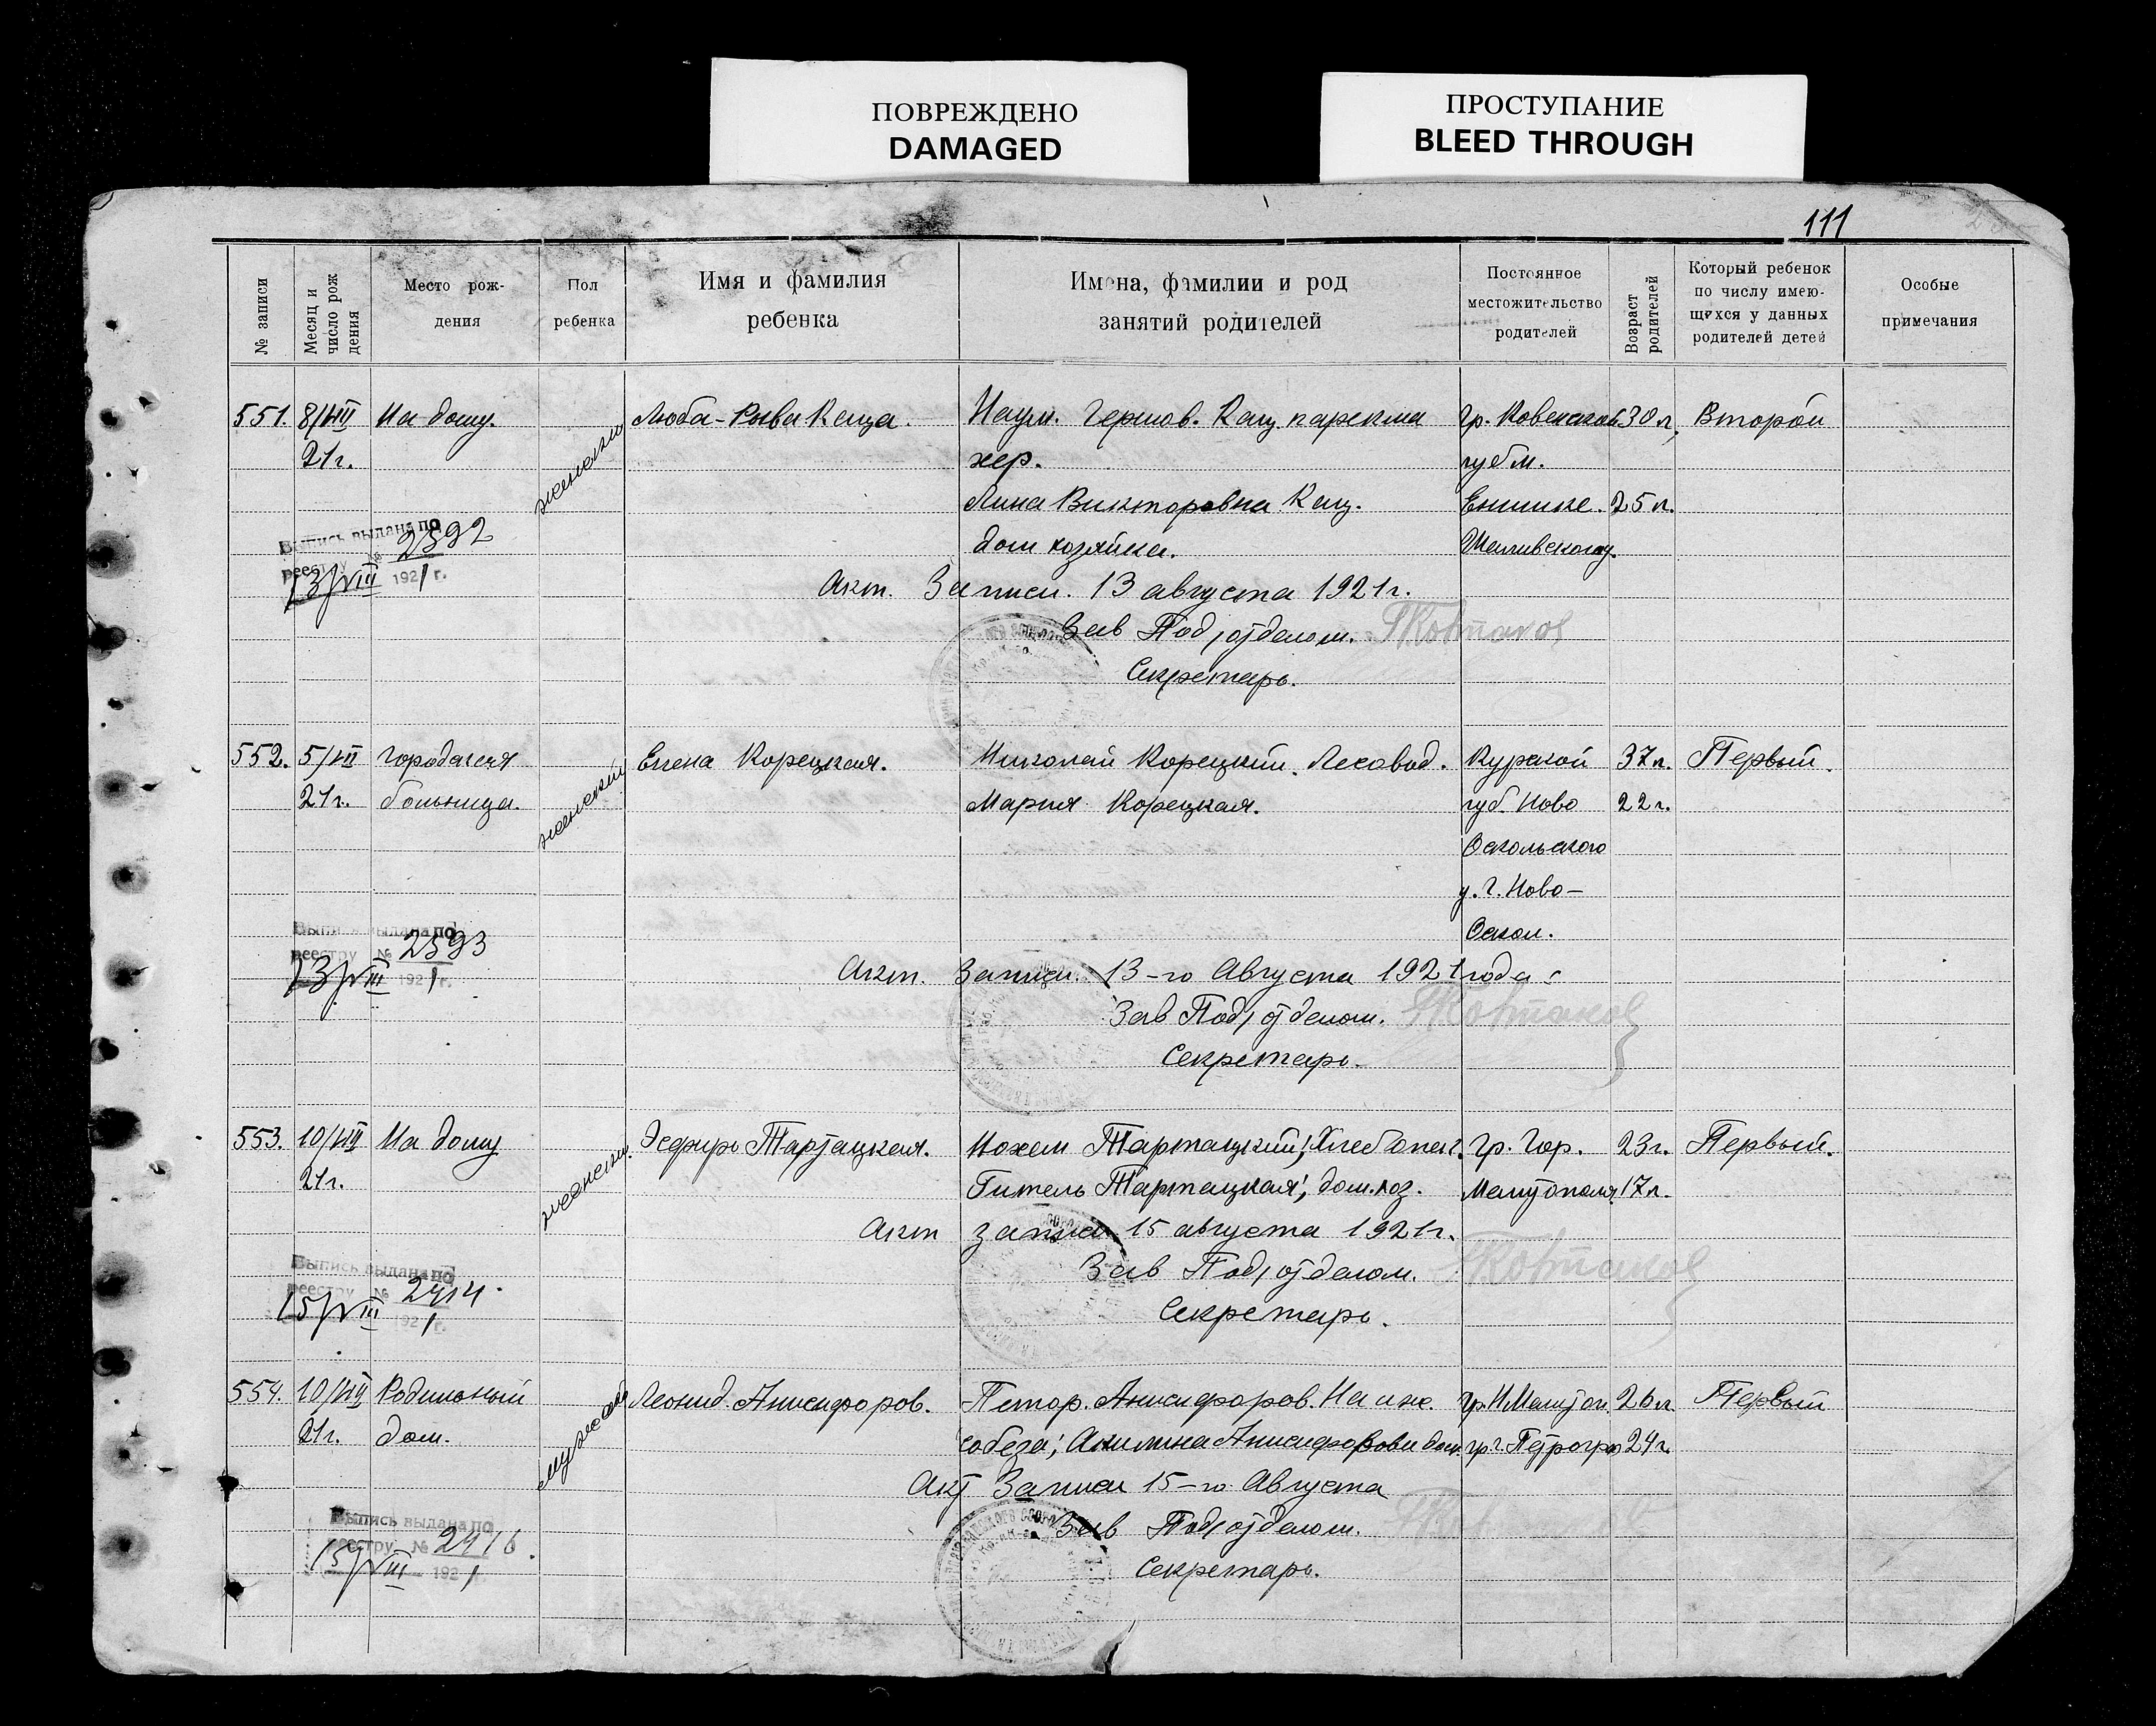 ПОВРЕЖДЕНО
DAMAGED
ПРОСТУПАНИЕ
BLEED THROUGH
111
№ записи
Месяц и число рождения
Место рождения
Пол ребенка
Имя и фамилия ребенка
Имена, фамилии и род занятий родителей
Постоянное местожительство родителей
Возраст родителей
Который ребенок по числу имеющихся у данных родителей детей
Особые примечания
551. 8/VIII На дому. женский Люба-Рыва Каца. Наум. Гершов. Кац парикма гр. Ковенской 30 л. Второй
21 г. хер. губ м.
Лина Викторовна Кац. 25 л.
дом хозяйка.
Выпись выдана по реестру № 2392
13/VIII 1921 г.
Акт. Записи. 13 августа 1921 г.
Зав Подотделом.
Секретарь.
552. 5/VII городская женский Елена Корецкая. Николай Корецкий. Лесовод. Курской 37 л. Первый.
21 г. больница. Мария Корецкая. губ. Ново 22 г.
Оскольского
у. г. Ново-
Оскол.
Выпись выдана по реестру № 2393
13/VIII 1921 г.
Акт. Записи. 13-го Августа 1921 года
Зав Подотделом.
Секретарь.
553. 10/VIII На дому женский. Эсфирь Тартацкая. Нохем Тартацкий; Хлебопек. гр. гор. 23 г. Первый.
21 г. Гитель Тартацкая; дом. хоз. Мелитополя 17 л.
Акт записи 15 августа 1921 г.
Выпись выдана по реестру № 2414.
15/VIII 1921 г.
Зав Подотделом.
Секретарь.
554. 10/VIII Родильный мужской Леонид Анисифоров. Петор. Анисифоров. 26 л. Первый
21 г. дом. собеза; Акилина Анисифорова дом. гр. г. Петрогр 24 г.
Акт Записи 15-го Августа
Выпись выдана по реестру № 2416.
15/VIII 1921
Зав Подотделом.
Секретарь.